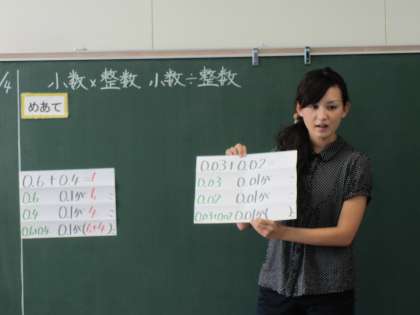 /4
小数×整数 小数÷整数
めあて
0.6+0.4 1
0.6 0.1が 6 こ
0.4 0.1が 4 こ
0.6+0.4 0.1が(6+4)こ
0.03+0.02
0.03 0.01が こ
0.02 0.01が こ
0.03+0.02 0.01が( )こ